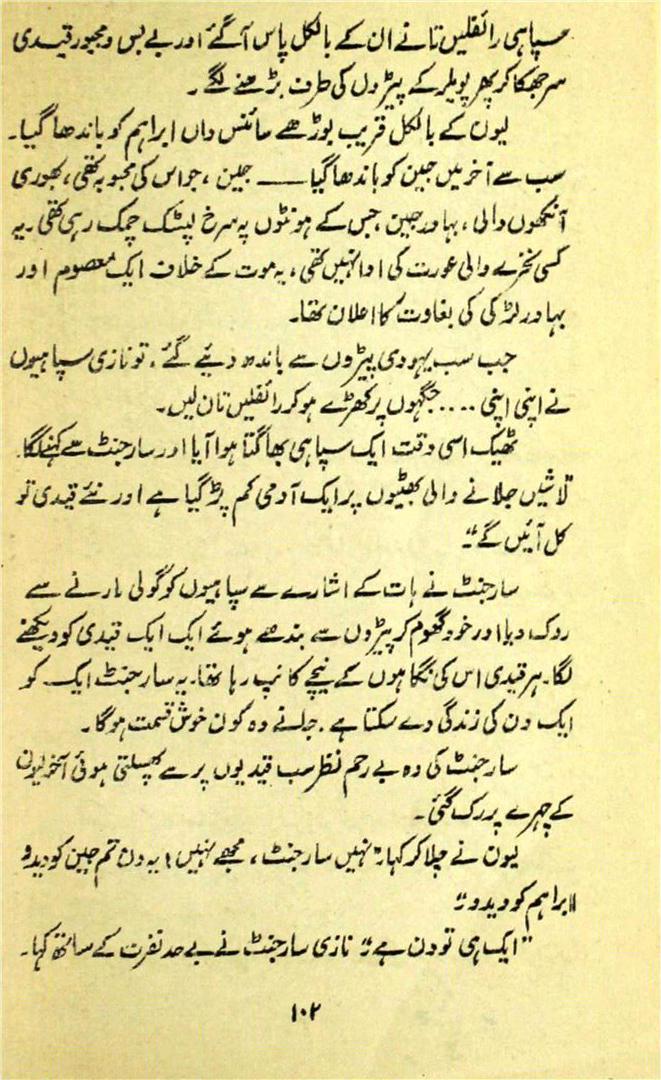 سپاہی رائفلیں تانے ان کے بالکل پاس آگئے اور بے بس و مجبور قیدی
سر جھکا کر پھر پوپلر کے پیڑوں کی طرف بڑھنے لگے۔
لیون کے بالکل قریب بوڑھے سائنس داں ابراہم کو باندھا گیا۔
سب سے آخر میں جین کو باندھا گیا —— جین، جو اس کی محبوبہ تھی، بھوری
آنکھوں والی، بہادر جین، جس کے ہونٹوں پہ سرخ لپٹک چمک رہی تھی۔ یہ
کسی نخرے والی عورت کی ادا نہیں تھی، یہ موت کے خلاف ایک معصوم اور
بہادر لڑکی کی بغاوت کا اعلان تھا۔
جب سب یہودی پیڑوں سے باندھ دیئے گئے، تو نازی سپاہیوں
نے اپنی اپنی .... جگہوں پر کھڑے ہو کر رائفلیں تان لیں۔
ٹھیک اسی وقت ایک سپاہی بھاگتا ہوا آیا اور سارجنٹ سے کہنے لگا۔
"لاشیں جلانے والی بھٹیوں پر ایک آدمی کم پڑ گیا ہے اور نئے قیدی تو
کل آئیں گے"۔
سارجنٹ نے ہات کے اشارے سے سپاہیوں کو گولی مارنے سے
روک دیا اور خود گھوم کر پیڑوں سے بندھے ہوئے ایک ایک قیدی کو دیکھنے
لگا۔ ہر قیدی اس کی نگاہوں کے نیچے کانپ رہا تھا۔ یہ سارجنٹ ایک کو
ایک دن کی زندگی دے سکتا ہے۔ جانے وہ کون خوش قسمت ہوگا۔
سارجنٹ کی وہ بے رحم نظر سب قیدیوں پر سے پھسلتی ہوئی آخر لیون
کے چہرے پر رک گئی۔
لیون نے چلا کر کہا۔ "نہیں سارجنٹ، مجھے نہیں! یہ دن تم جین کو دیدو
ابراہم کو دیدو"۔
"ایک ہی تو دن ہے"۔ نازی سارجنٹ نے بے حد نفرت کے ساتھ کہا۔
۱۰۲